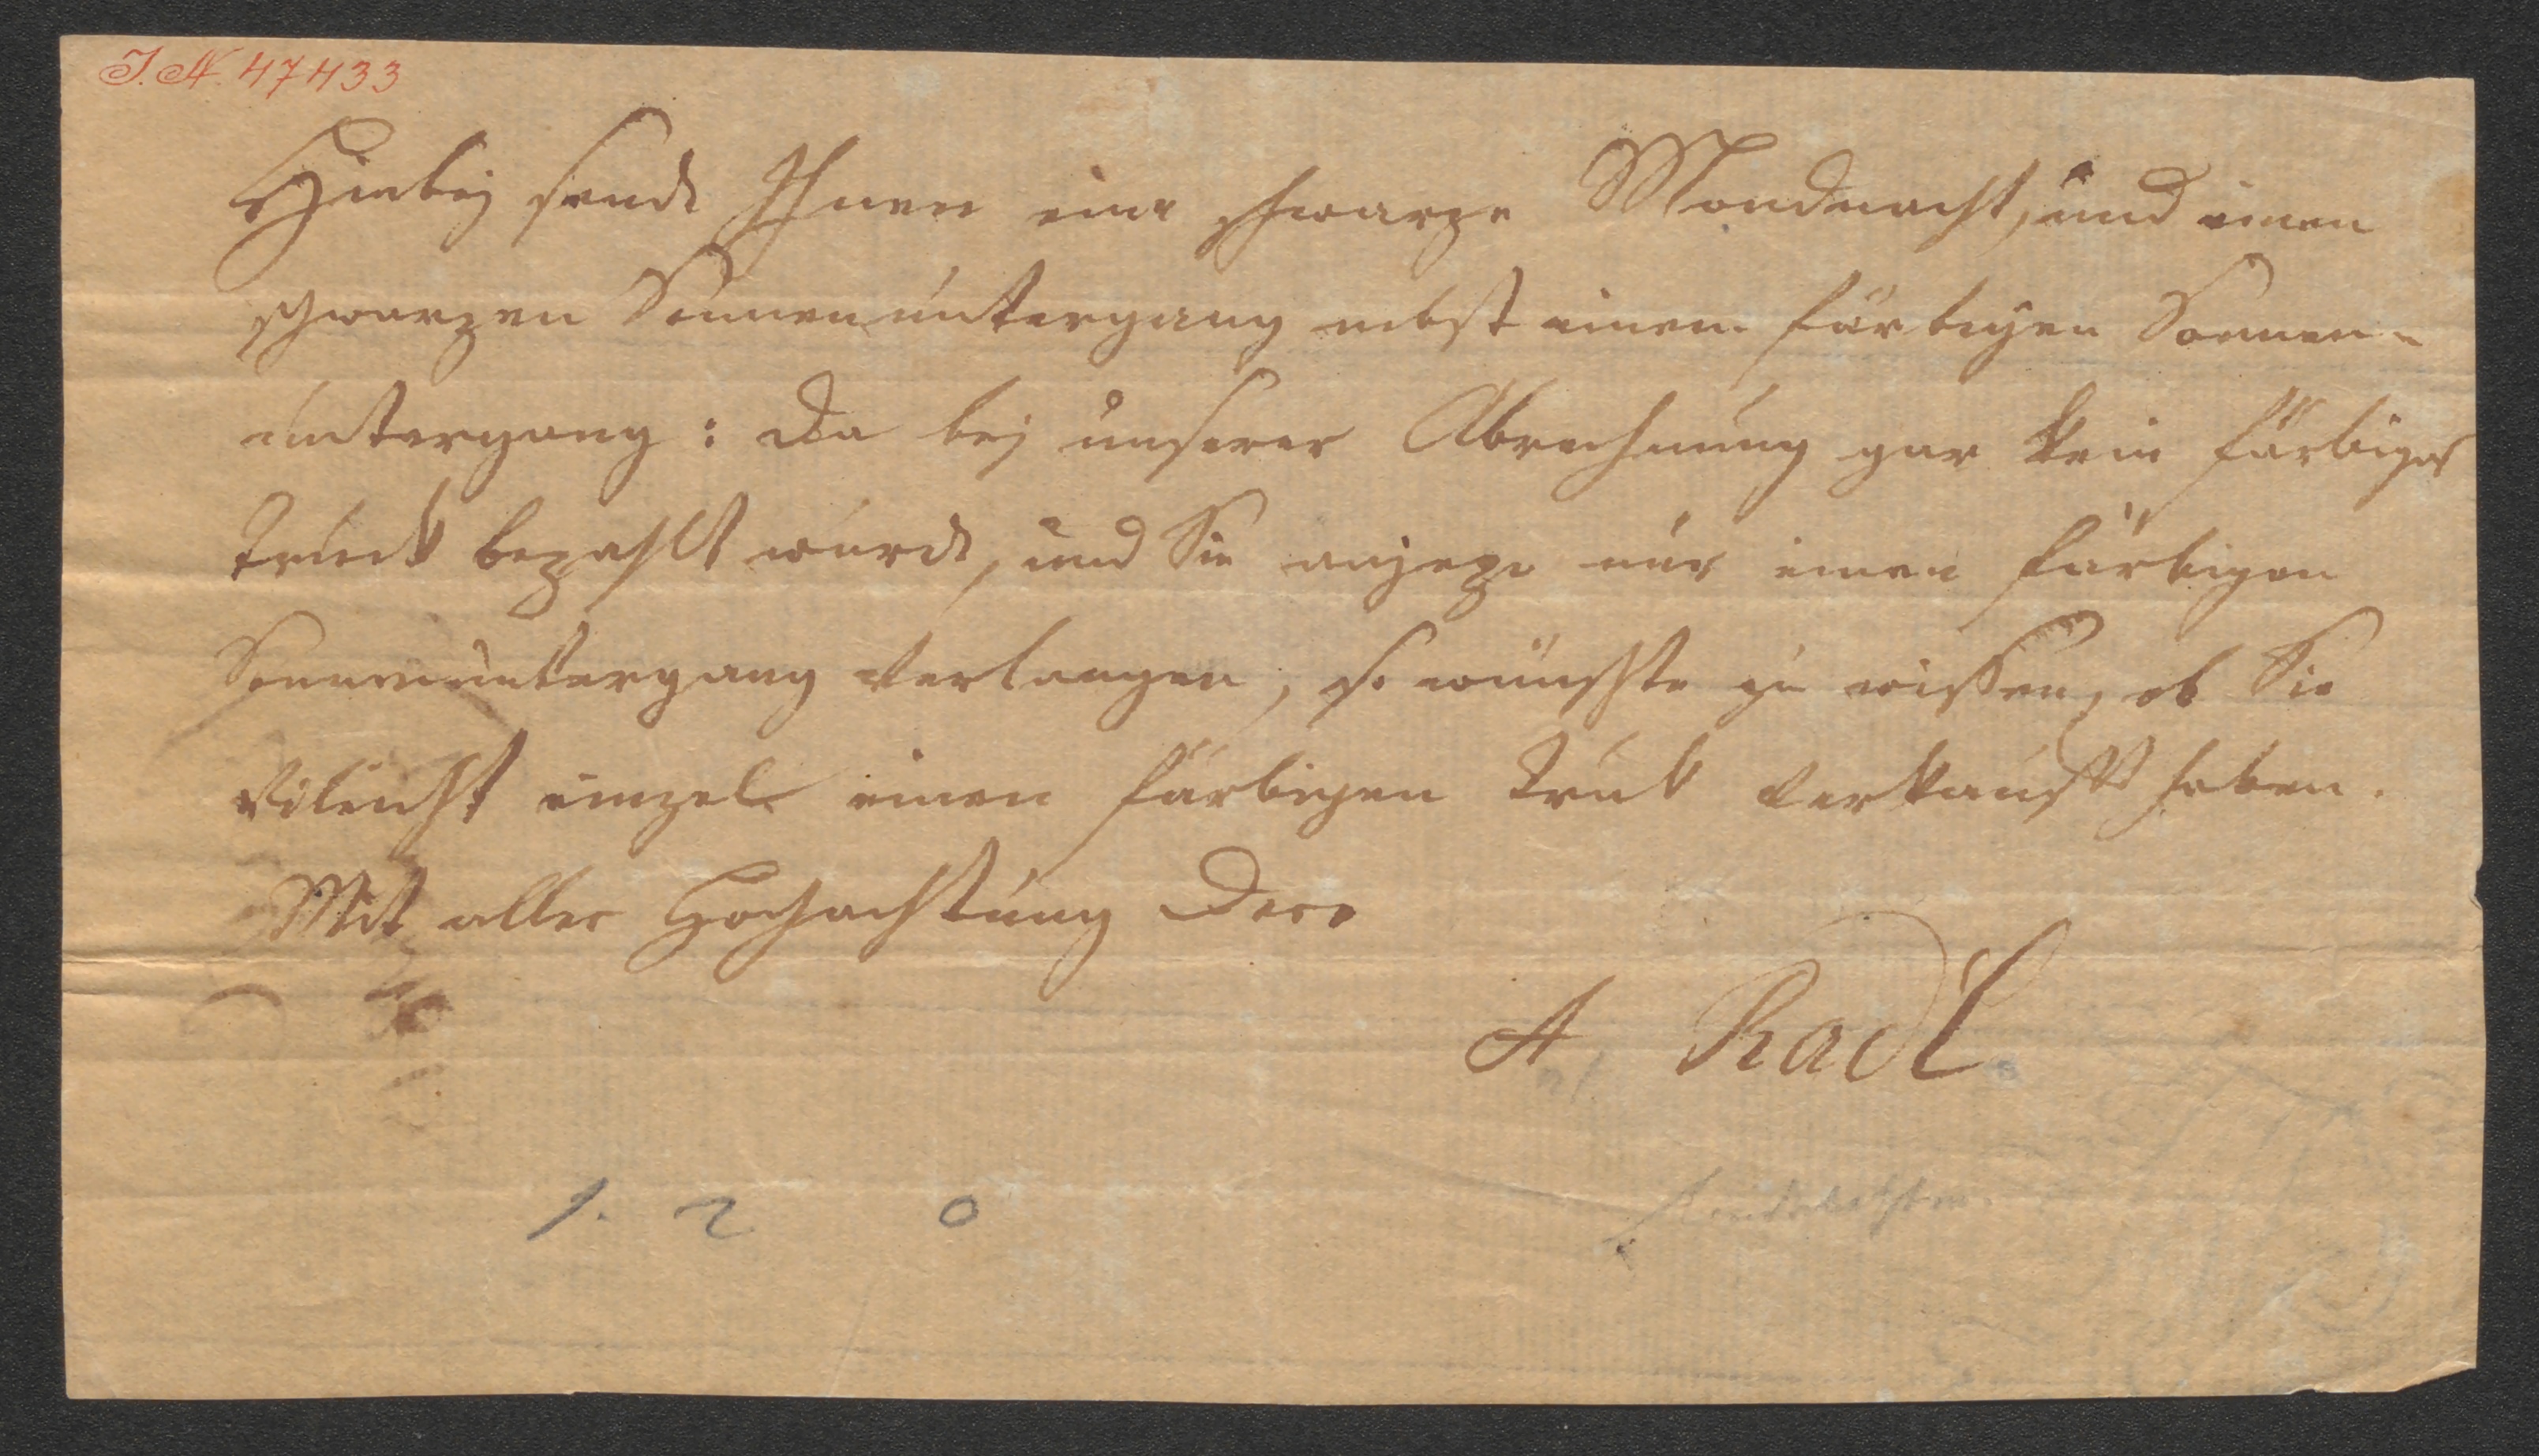 I.N. 47433
Hierbej sende Ihnen eine schwarze Mondnacht, und einen
schwarzen Sonnenuntergang nebst einem färbigen Sonnen-
untergang: Da bej unserer Abrechnung gar kein färbiger
Truck bezahlt wurde, und Sie anjezo nur einen färbigen
Sonnenuntergang verlangen, so wünschte zu wissen, ob Sie
vileicht einzele einen färbigen Truk verkauft haben.
Mit aller Hochachtung Dero
A Radl
1. 2 0